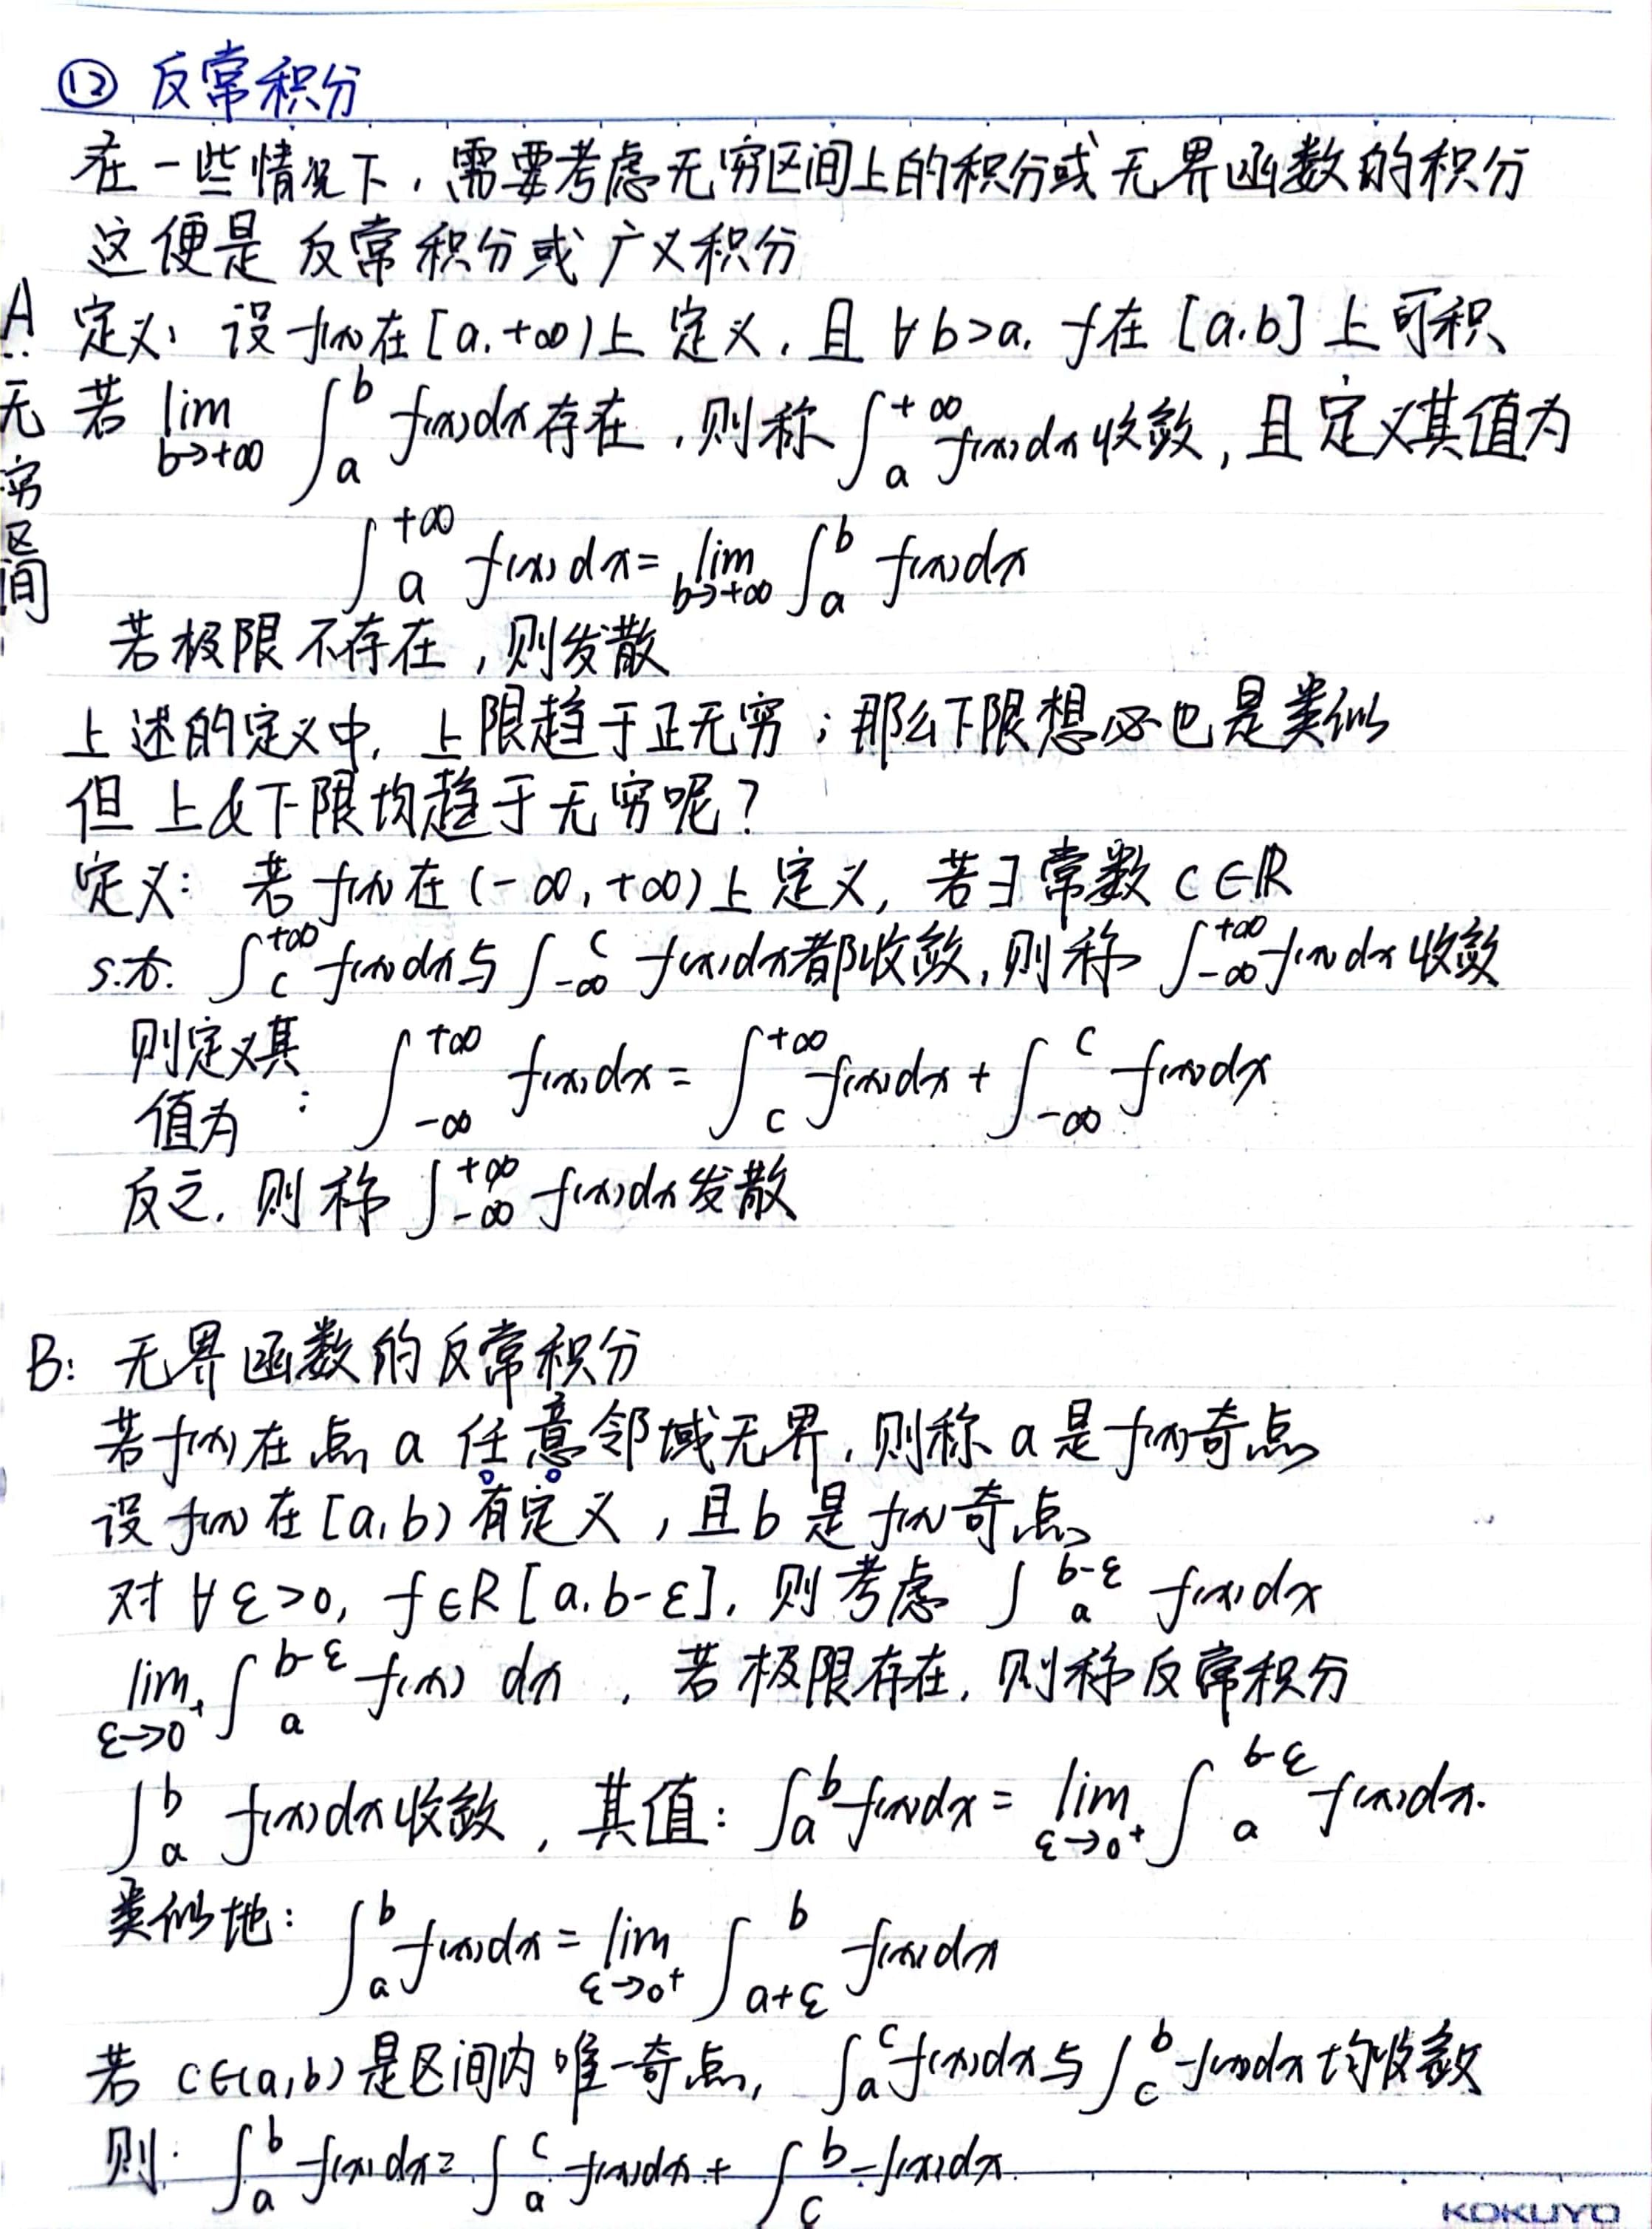 ⑫ 反常积分
在一些情况下，需要考虑无穷区间上的积分或无界函数的积分
这便是反常积分或广义积分
A：无穷区间
定义：设f(x)在[a,+∞)上定义，且∀b>a, f在[a,b]上可积
若 lim_{b→+∞} ∫_a^b f(x)dx存在，则称∫_a^{+∞} f(x)dx收敛，且定义其值为
∫_a^{+∞} f(x)dx = lim_{b→+∞} ∫_a^b f(x)dx
若极限不存在，则发散
上述的定义中，上限趋于正无穷；那么下限想必也是类似
但上&下限均趋于无穷呢？
定义：若f(x)在(-∞,+∞)上定义，若∃常数c∈ℝ
s.t. ∫_c^{+∞} f(x)dx与∫_{-∞}^c f(x)dx都收敛，则称∫_{-∞}^{+∞} f(x)dx收敛
则定义其值为：∫_{-∞}^{+∞} f(x)dx = ∫_c^{+∞} f(x)dx + ∫_{-∞}^c f(x)dx
反之，则称∫_{-∞}^{+∞} f(x)dx发散
B：无界函数的反常积分
若f(x)在点a任意邻域无界，则称a是f(x)奇点
设f(x)在[a,b)有定义，且b是f(x)奇点
对∀ε>0, f∈R[a,b-ε]，则考虑∫_a^{b-ε} f(x)dx
lim_{ε→0⁺} ∫_a^{b-ε} f(x)dx，若极限存在，则称反常积分
∫_a^b f(x)dx收敛，其值：∫_a^b f(x)dx = lim_{ε→0⁺} ∫_a^{b-ε} f(x)dx.
类似地：∫_a^b f(x)dx = lim_{ε→0⁺} ∫_{a+ε}^b f(x)dx
若c∈(a,b)是区间内唯一奇点，∫_a^c f(x)dx与∫_c^b f(x)dx均收敛
则：∫_a^b f(x)dx = ∫_a^c f(x)dx + ∫_c^b f(x)dx.
KOKUYO